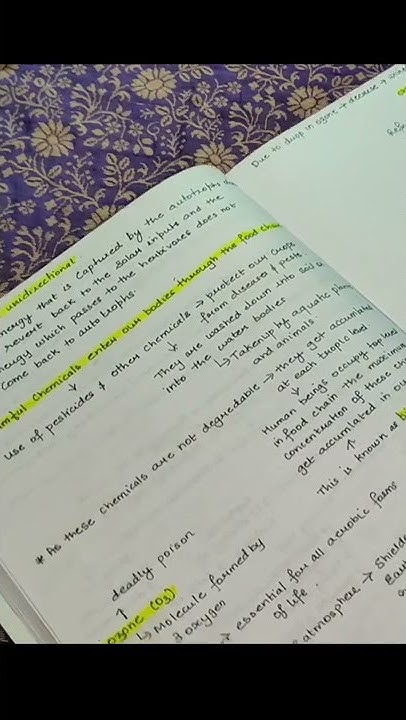 unidirectional
energy that is captured by the autotrophs does
revert back to the solar inputs and the
energy which passes to the herbivores does not
come back to autotrophs.
harmful chemicals enter our bodies through the food chain
use of pesticides & other chemicals → protect our crops
from disease & pests
↓
They are washed down into soil or
into the water bodies
↳ Taken up by aquatic plants
and animals.
* As these chemicals are not degradable → they get accumulated
at each tropic level
↓
Human beings occupy top level
in food chain the maximum
concentration of these
get accumlated in our
↑
This is known as
deadly poison
↑
ozone (O3)
↳ Molecule formed by
3 oxygen
→ essential for all aerobic forms
of life.
atmosphere → Shields
Due to drop in ozone → decrease →